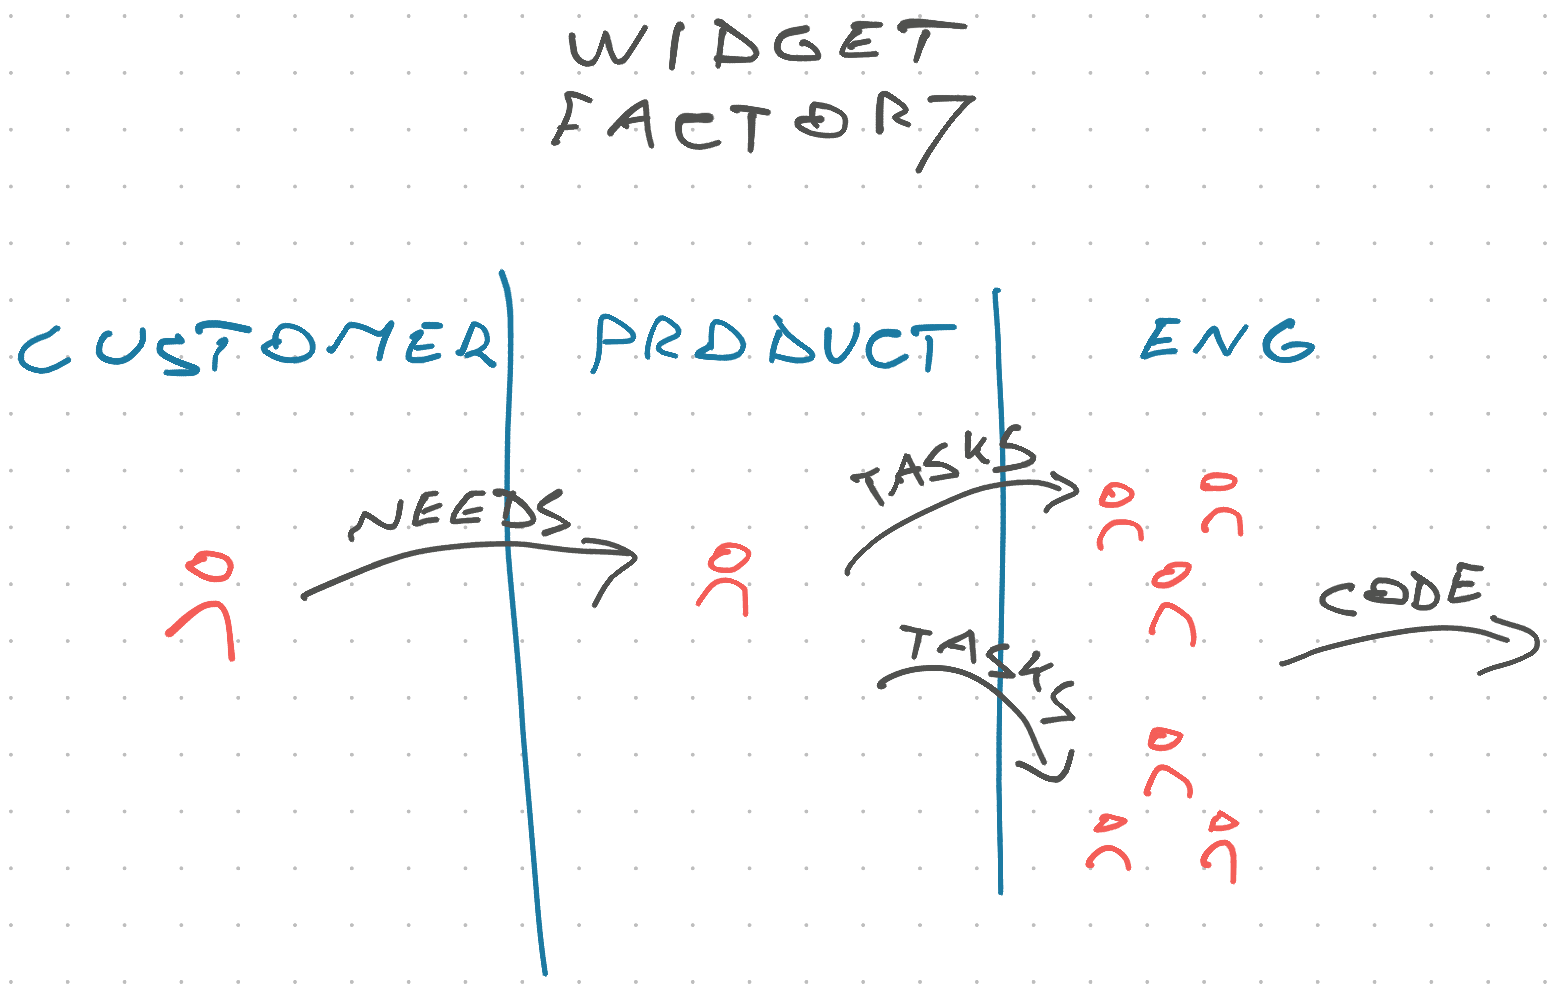 WIDGET
FACTORY
CUSTOMER PRODUCT ENG
NEEDS
TASKS
TASKS
CODE